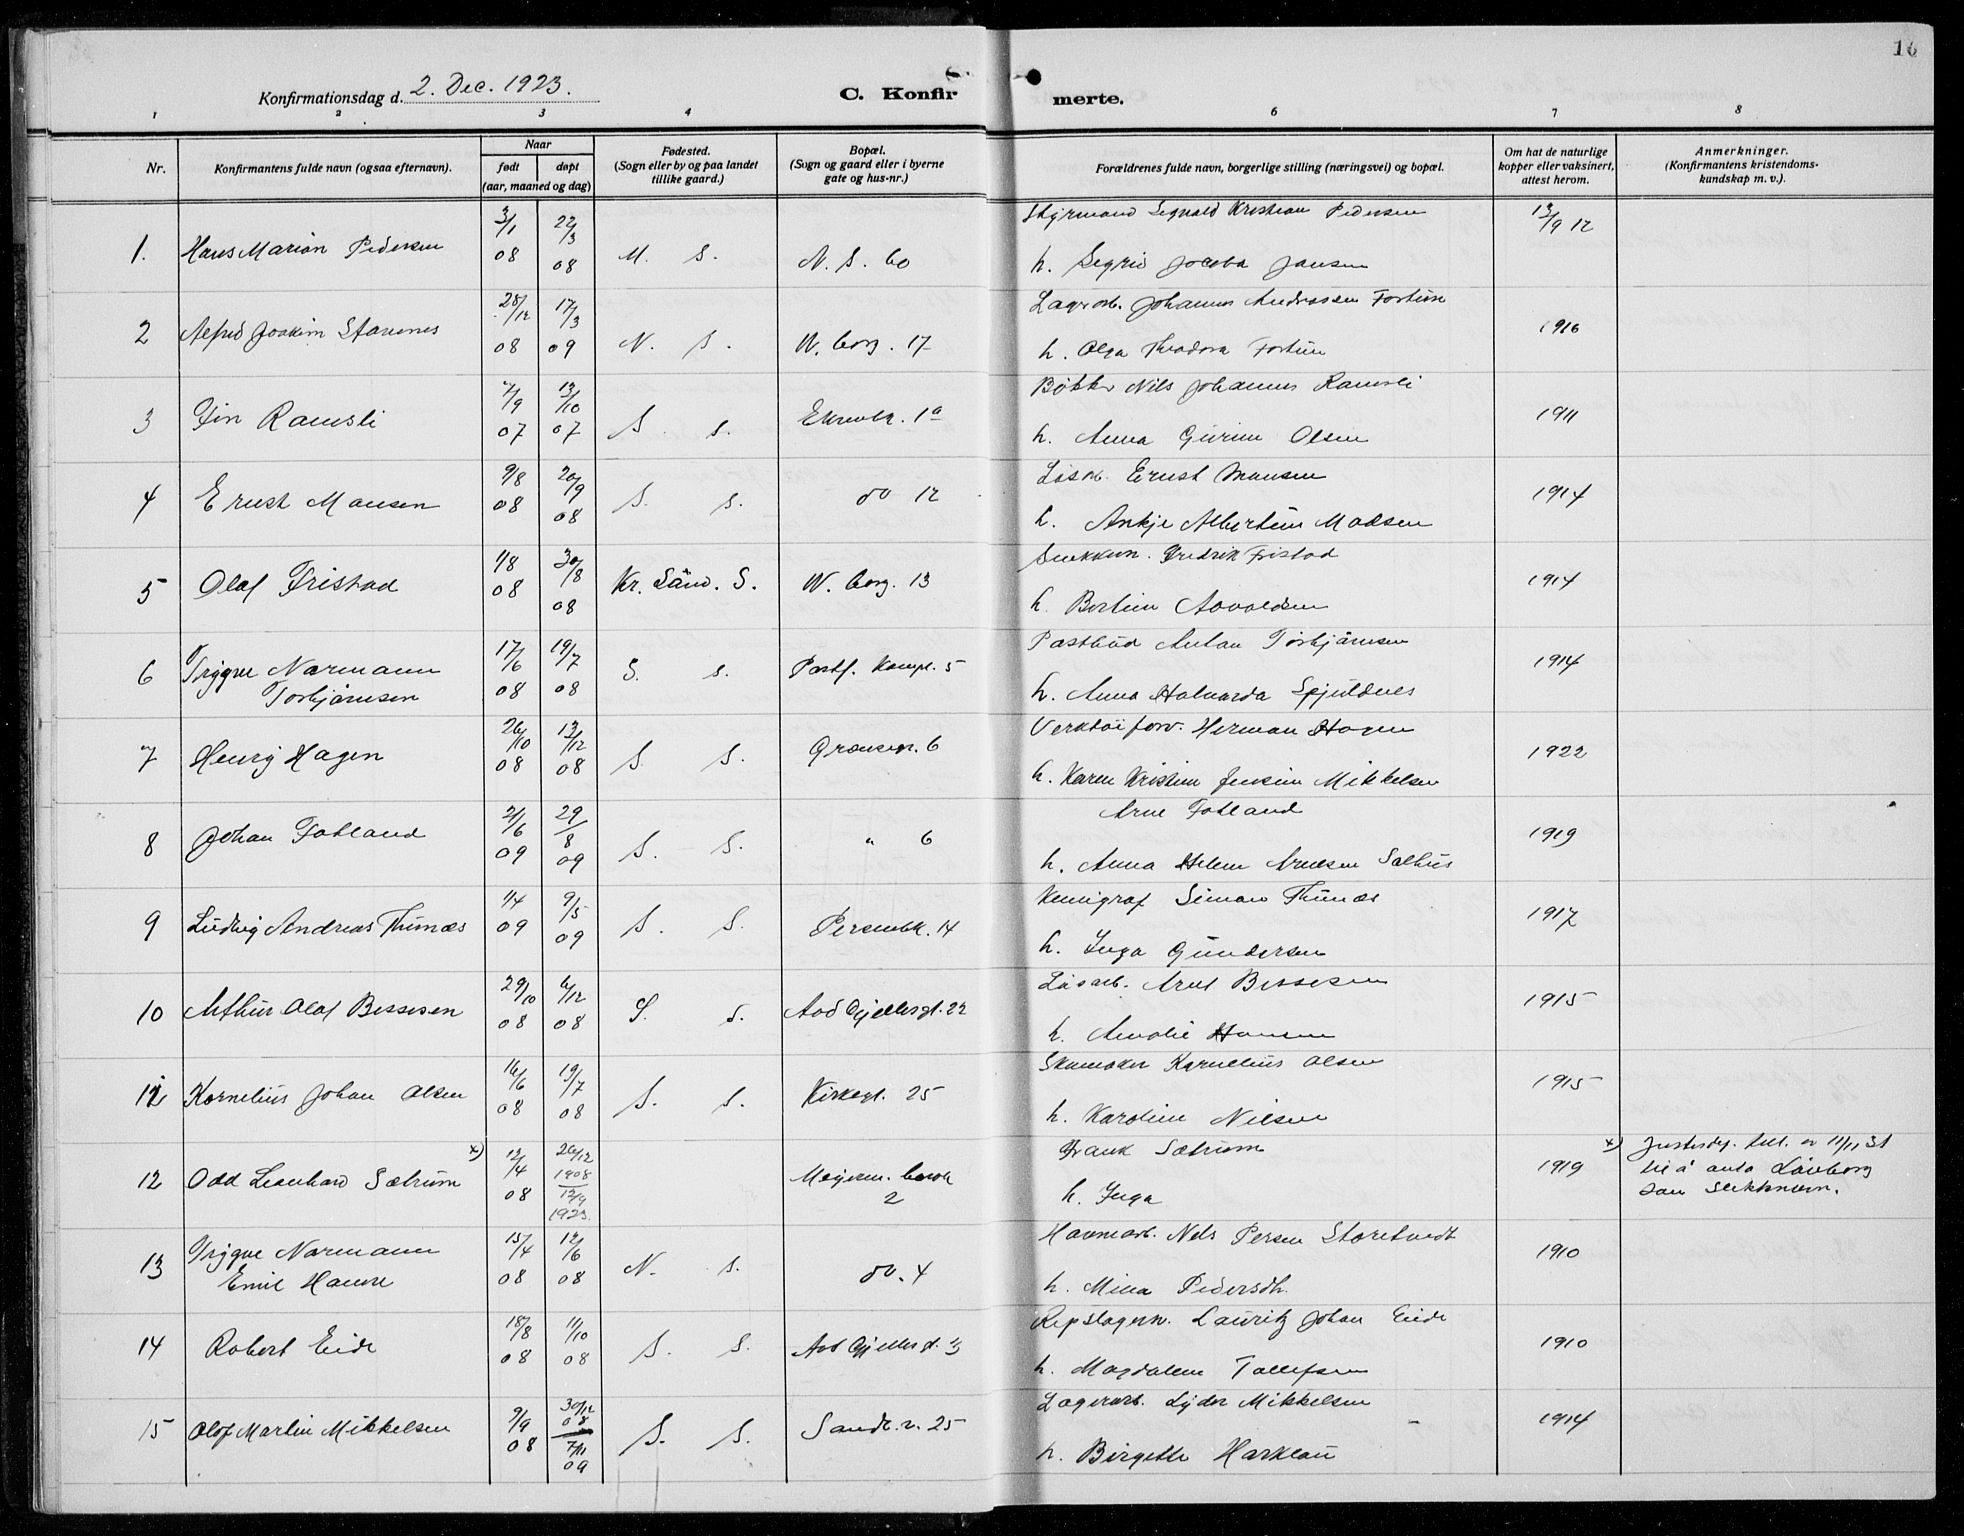 16
Konfirmationsdag d. 2. Dec. 1923.
C. Konfirmerte.
1 2 3 4 6 7 8
Nr. Konfirmantens fulde navn (ogsaa efternavn). Naar født døpt (aar, maaned og dag) Fødested. (Sogn eller by og paa landet tillike gaard.) Bopæl. (Sogn og gaard eller i byerne gate og hus-nr.) Forældrenes fulde navn, borgerlige stilling (næringsvei) og bopæl. Om hat de naturlige kopper eller vaksinert, attest herom. Anmerkninger. (Konfirmantens kristendomskundskap m. v.).
1. Hans Marion Pedersen 3/1 08 22/3 08 M. S. N. S. 60 Styrmand Kristian Pedersen 13/9 12
h. Sigrid Jansen
2 Alfred Joakim Stavenes 28/12 08 17/3 09 N. S. N. borg. 17 Johannes Andreassen Fortun 1916
h. Olga Theodora Fortun
3 Fin Ramsli 7/9 07 13/10 07 S. s. 1a Bøkker Nils Johannes Ramsli 1911
h. Anna Gurine Olsen
4 Ernst Monsen 9/8 08 20/9 08 S. s. do 12 Løsarb. Ernst Monsen 1914
h. Ankje Albertine Madsen
5 Olaf Fristad 1/8 08 30/8 08 Kr. Sand. S. N. borg. 13 Fredrik Fristad 1914
h. Bertine Aavaldsen
6 Trygve Normann Torbjørnsen 17/6 08 19/7 08 S. s. Postf. 5 Postbud Anton Torbjørnsen 1914
h. Anna Halvarda Spjeldnes
7 Henry Hagen 26/10 08 13/12 08 S. S. 6 Verktøiforv. Herman Hagen 1922
h. Karen Kristine Jensine Mikkelsen
8 Johan Fotland 2/6 09 29/8 09 S. S. " 6 Arne Fotland 1919
h. Anna Helene Arnesen Salhus
9 Ludvig Andreas Thunæs 1/4 09 9/5 09 S. S. Persenbk. 14 Kemigraf Simon Thunæs 1917
h. Inga Gundersen
10 Arthur Olaf Bessesen 29/10 08 6/12 08 S. s. Aad Gjellesgt. 22 Løsarb. Arne Bessesen 1915
h. Amalie Hansen
11 Kornelius Johan Olsen 16/6 08 19/7 08 S. s. Kirkegt. 25 Skomaker Kornelius Olsen 1915
h. Karoline Nilsen
12 Odd Leonhard Sætrum x) 12/4 08 26/12 1908 12/9 1923. 2 Frank Sætrum 1919 x) Justisdep. till. av 11/11 31
h. Inga til å anta Løvborg
som slektsnavn.
13 Trygve Normann Emil Hauve 15/4 08 12/6 08 N. s. do. 4 Havnearb. Nils Persen Storetvedt 1910
h. Mina Pedersdtr.
14 Robert Eide 18/8 08 11/10 08 S. S. Aad Gjellesgt. Repslagerm. Lauritz Johan Eide 1910
h. Magdalene Tollefsen
15 Olaf Martin Mikkelsen 9/9 08 30/12 08 7/11 09 S. S. Sandv. v. 25 Lagerarb. Lyder Mikkelsen 1914
h. Birgitte Harklau